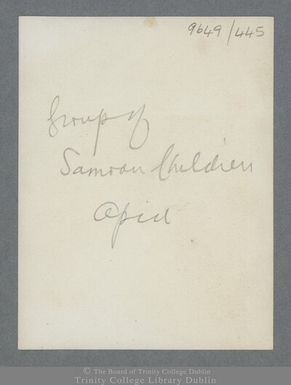 9649/445
Group of
Samoan Children
Apia
© The Board of Trinity College Dublin
Trinity College Library Dublin